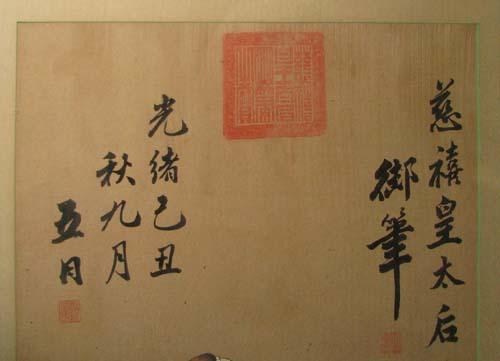 慈禧皇太后
御筆
光緒己丑
秋九月
五日